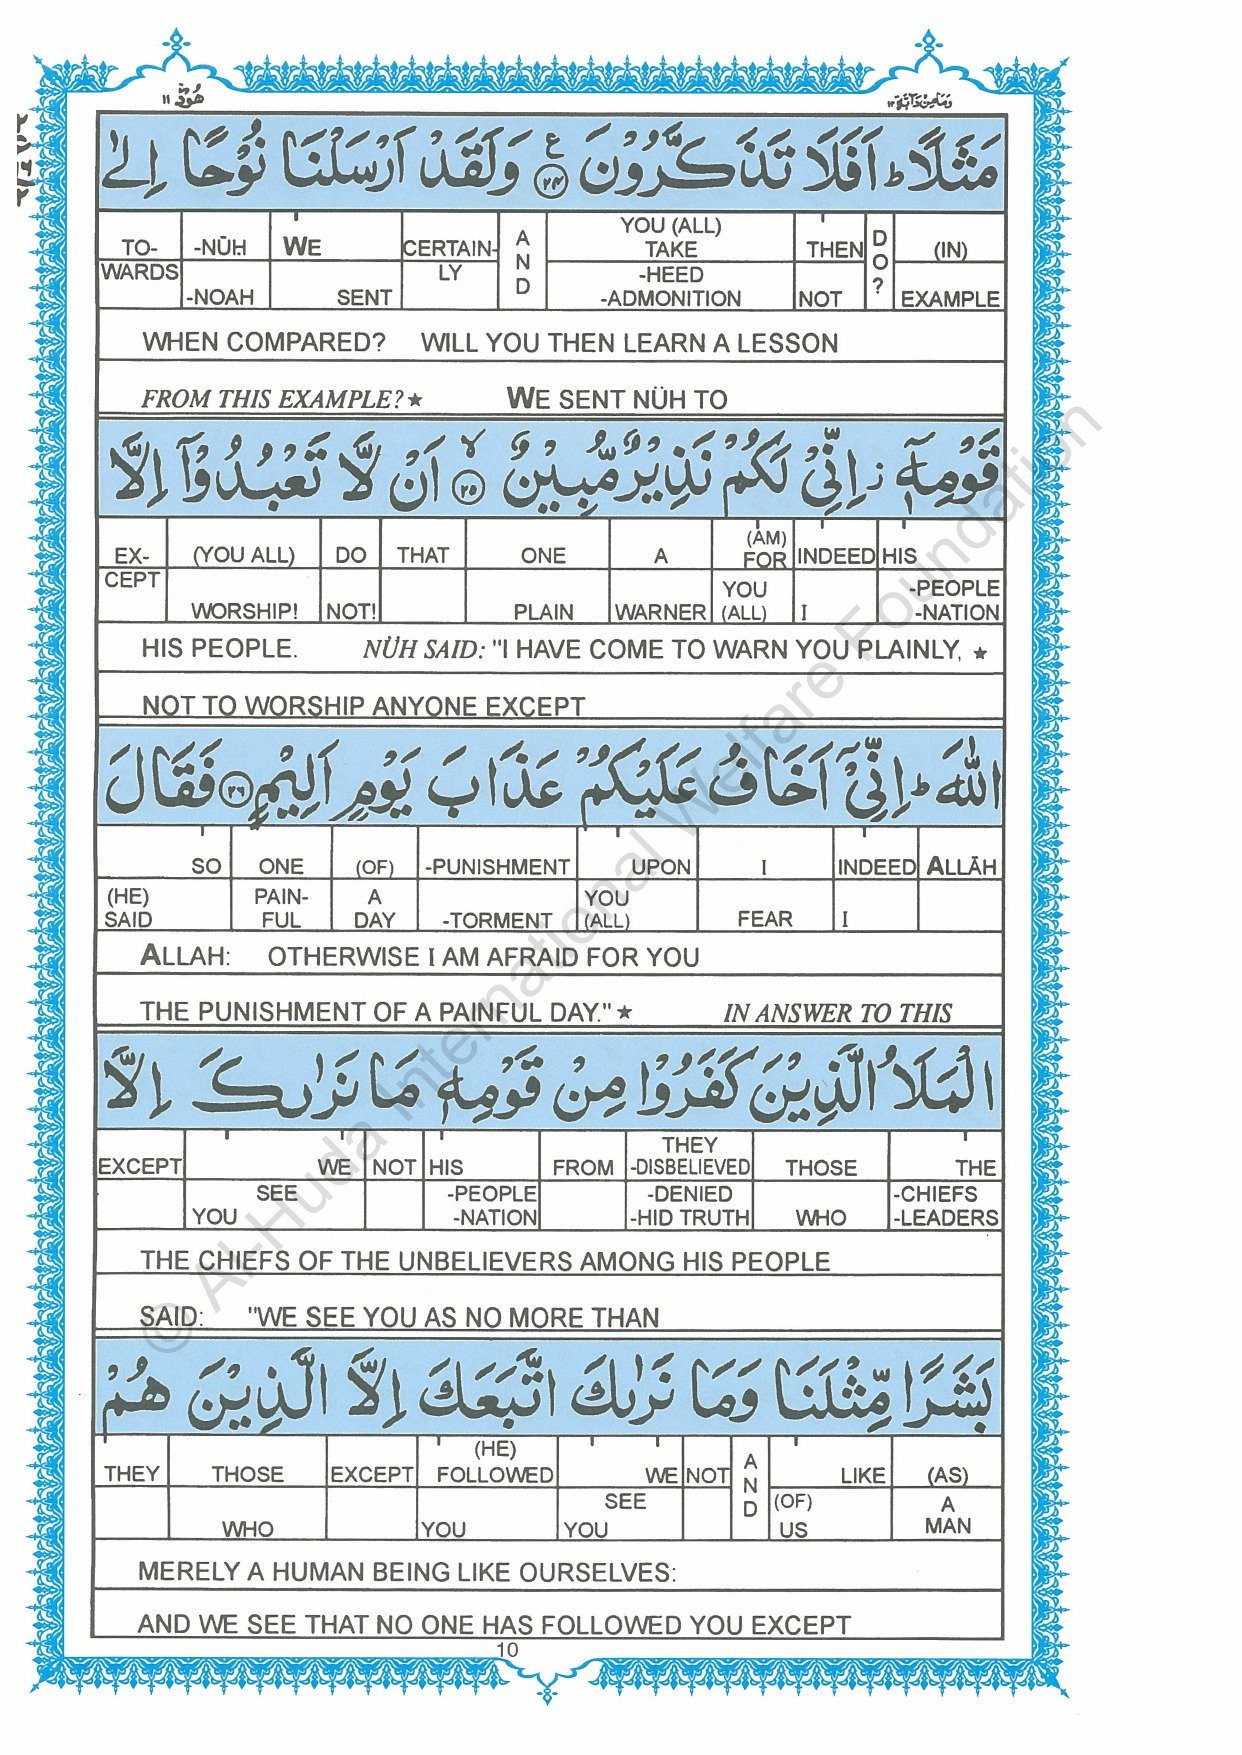 هُوْد ١١
وَمَا مِنْ دَآبَّة ١٢
مَثَلًا ؕ اَفَلَا تَذَكَّرُوْنَ ﴿٢٤﴾ ع وَلَقَدْ اَرْسَلْنَا نُوْحًا اِلٰى
TO- -NŪH WE CERTAIN- AND YOU (ALL) TAKE THEN DO? (IN)
WARDS -NOAH SENT LY -HEED -ADMONITION NOT EXAMPLE
WHEN COMPARED? WILL YOU THEN LEARN A LESSON
FROM THIS EXAMPLE?★ WE SENT NÜH TO
قَوْمِهٖٓ ز اِنِّيْ لَكُمْ نَذِيْرٌ مُّبِيْنٌ ﴿٢٥﴾ ۙ اَنْ لَّا تَعْبُدُوْٓا اِلَّا
EX- (YOU ALL) DO THAT ONE A (AM) FOR INDEED HIS
CEPT WORSHIP! NOT! PLAIN WARNER YOU (ALL) I -PEOPLE -NATION
HIS PEOPLE. NÜH SAID: "I HAVE COME TO WARN YOU PLAINLY, ★
NOT TO WORSHIP ANYONE EXCEPT
اللّٰهَ ؕ اِنِّيْٓ اَخَافُ عَلَيْكُمْ عَذَابَ يَوْمٍ اَلِيْمٍ ﴿٢٦﴾ فَقَالَ
SO ONE (OF) -PUNISHMENT UPON I INDEED ALLĀH
(HE) SAID PAIN- FUL A DAY -TORMENT YOU (ALL) FEAR I
ALLAH: OTHERWISE I AM AFRAID FOR YOU
THE PUNISHMENT OF A PAINFUL DAY."★ IN ANSWER TO THIS
الْمَلَاُ الَّذِيْنَ كَفَرُوْا مِنْ قَوْمِهٖ مَا نَرٰىكَ اِلَّا
EXCEPT WE NOT HIS FROM THEY -DISBELIEVED THOSE THE
SEE YOU -PEOPLE -NATION -DENIED -HID TRUTH WHO -CHIEFS -LEADERS
THE CHIEFS OF THE UNBELIEVERS AMONG HIS PEOPLE
SAID: "WE SEE YOU AS NO MORE THAN
بَشَرًا مِّثْلَنَا وَمَا نَرٰىكَ اتَّبَعَكَ اِلَّا الَّذِيْنَ هُمْ
THEY THOSE EXCEPT (HE) FOLLOWED WE NOT AND LIKE (AS)
WHO YOU SEE YOU (OF) US A MAN
MERELY A HUMAN BEING LIKE OURSELVES:
AND WE SEE THAT NO ONE HAS FOLLOWED YOU EXCEPT
10
© Al-Huda International Welfare Foundation